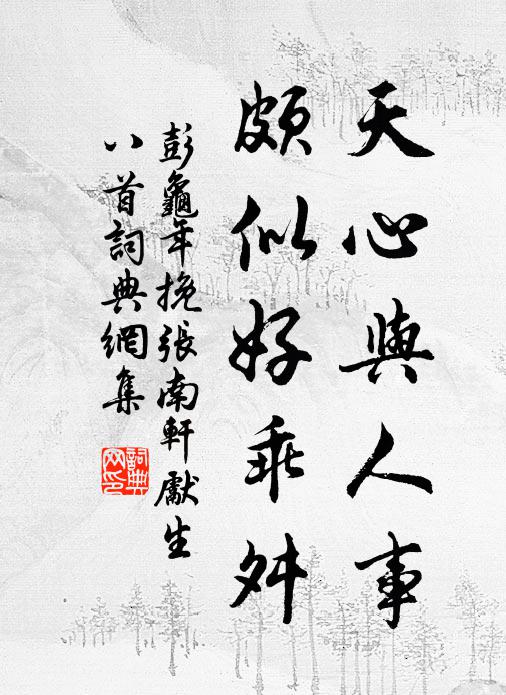 天心與人事
頗似好乖舛
彭龜年挽張南軒獻生
八首詞典網集
詞典網印